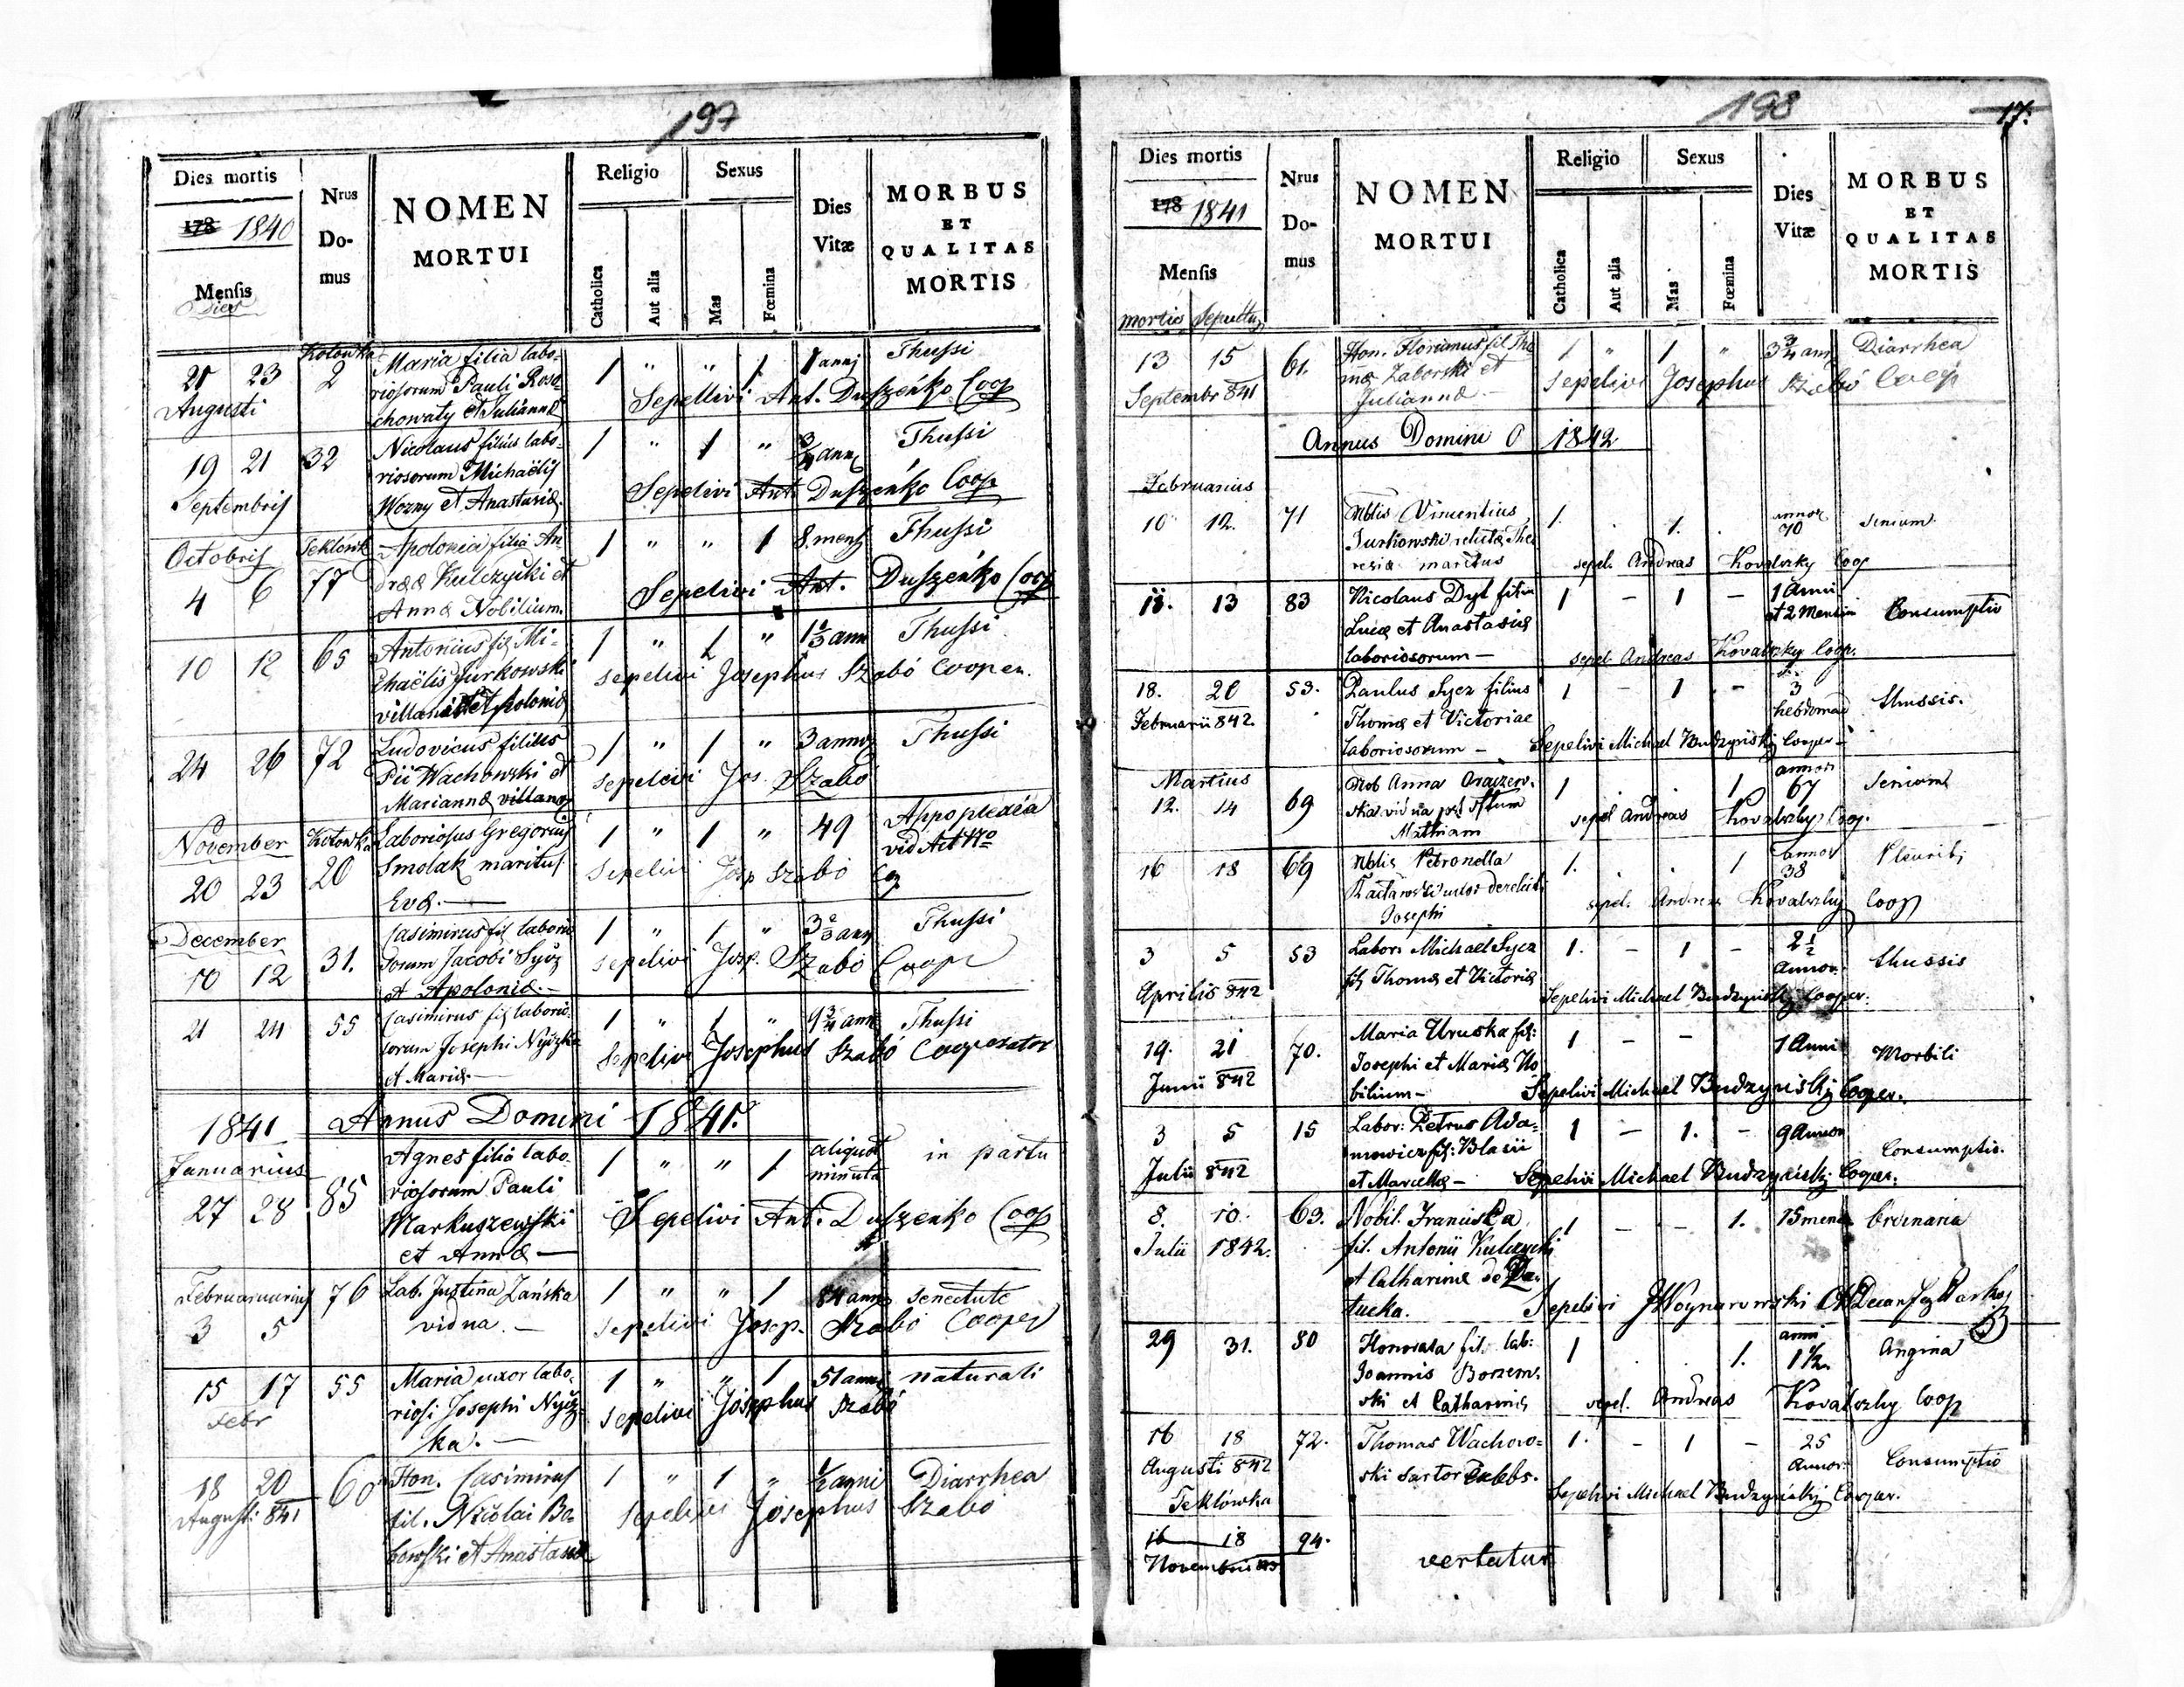 197
Dies mortis
178 1840
Mensis
Dies
Nrus
Do-
mus
NOMEN
MORTUI
Religio
Catholica
Aut alia
Sexus
Mas
Fœmina
Dies
Vitæ
MORBUS
ET
QUALITAS
MORTIS
Kotowka
21 23 2 Maria filia labo- 1 " " 1 1 anni Thussi
Augusti riosorum Pauli Roso-
chowaty et Juliannæ Sepellivi Ant. Duszeńko Coop
19 21 32 Nicolaus filius labo- 1 " 1 " 3/4 anni Thussi
Septembris riosorum Michaëlis
Wozny et Anastasiæ. Sepelivi Ant. Duszeńko Coop
Octobris Teklowk Apolonia filia An- 1 " " 1 8. mens Thussi
4 6 77 dreæ Kulczycki et
Annæ Nobilium. Sepelivi Ant. Duszeńko Coop
10 12 65 Antonius fil Mi- 1 " 1 " 1 2/3 ann Thussi
chaëlis Jurkowski sepelivi Josephus Szabó Cooper.
villani et Apoloniæ
24 26 72 Ludovicus filius 1 " 1 " 3 annor Thussi
Pii Wachowski et sepelivi Jos. Szabó
Mariannæ villanor
November Kotowka Laboriosus Gregorius 1 " 1 " 49 Appoplexia
20 23 20 Smolak maritus vid Act Nro
Evæ. sepelivi Josp Szabó Cop
December Casimirus fil laborio 1 " 1 " 3 2/3 ann Thussi
10 12 31. sorum Jacobi Sycz sepelivi Josp. Szabó Coope
et Apoloniæ.
21 24 55 Casimirus fil laborio 1 " 1 " 9 3/4 ann Thussi
sorum Josephi Nyczka Sepelivi Josephus Szabó Cooperator
et Mariæ.
1841 Annus Domini 1841.
Januarius Agnes filia labo- 1 " " 1 aliquot in partu
27 28 85 riosorum Pauli minuta
Markuszewski Sepelivi Ant. Duszeńko Coop
et Annæ
Februaruarius 76 Lab. Justina Zańska 1 " " 1 84 ann senectute
3 5 vidua. sepelivi Josep. Szabó Cooper
15 17 55 Maria uxor labo- 1 " " 1 51 anni naturali
Febr riosi Josephi Nycz- sepelivi Josephus Szabó
ka.
18 20 60 Hon. Casimirus 1 " 1 " 1/2 anni Diarrhea
Augusti 841 fil. Nicolai Bo- sepelivi Josephus Szabo
bowski et Anastasiæ
198
17.
Dies mortis
178 1841
Mensis
mortis Sepultu
Nrus
Do-
mus
NOMEN
MORTUI
Religio
Catholica
Aut alia
Sexus
Mas
Fœmina
Dies
Vitæ
MORBUS
ET
QUALITAS
MORTIS
13 15 61. Hon. Florianus fil Tho 1 " 1 " 3 3/4 ann Diarrhea
Septembr 841 mæ Zaborski et sepelivi Josephus Szabó Coop
Juliannæ
Annus Domini 1842
Februarius
10 12. 71 Nblis Vincentius 1. . 1. . annor 70 senium
Turkowski relictæ The
resiæ maritus sepel. Andreas Kovalszky Coop
11. 13 83 Nicolaus Dyl filiu 1 - 1 - 1 Anni
Lucæ et Anastasiæ et 2 Mensiu Consumptio
laboriosorum - sepel. Andreas Kovalszky Coop.
18. 20 53. Paulus Sycz filius 1 - 1 - 3 thussis.
Februarii 842. Thomæ et Victoriae hebdomad
laboriosorum - Sepelivi Michael Budzynskij Cooper -
Martius
12. 14 69 Nob Anna 1 . . 1 annor 67 senium
vidua
Mathiam sepel Andreas Kovalszky Coop.
16 18 69 Nblis Petronella 1. . . 1 annor 38 Pleuritis
uxor derelict
Josephi sepel. Andreas Kovalszky Coop
3 5 53 Labors Michael Sycz 1. - 1 - 2 1/2 thussis
Aprilis 842 fil Thomæ et Victoriæ Annor.
Sepelivi Michael Budzynskij Cooper.
19. 21 70. Maria Uruska fil: 1 - - 1 Anni Morbili
Junii 842 Josephi et Mariæ No
bilium - Sepelivi Michael Budzynskij Cooper.
3 5 15 Labor: Petrus Ada= 1 - 1. - 9 Annor Consumptio.
Julii 842 mowicz fil: Blasii
et Marcellæ - Sepelivi Michael Budzynskij Cooper.
8. 10. 63. Nobil. Franciska 1 - - 1. 15 mens Ordinaria
Julii 1842. fil. Antonii Kulczycki
et Catharinæ de
tucka. Sepelivi JWoynarowski
29 31. 80 Honorata fil. lab: 1 . . 1. anni 1 1/2. Angina
Joannis Borzem.
ski et Catharinæ sepel. Andreas Kovalszky Coop
16 18 72. Thomas Wachow= 1. - 1 - 25 Consumptio
Augusti 842 ski sartor Cælebs. Annor.
Teklówka Sepelivi Michael Budzynskij Cooper.
16 18 94. vertatur
Novembris